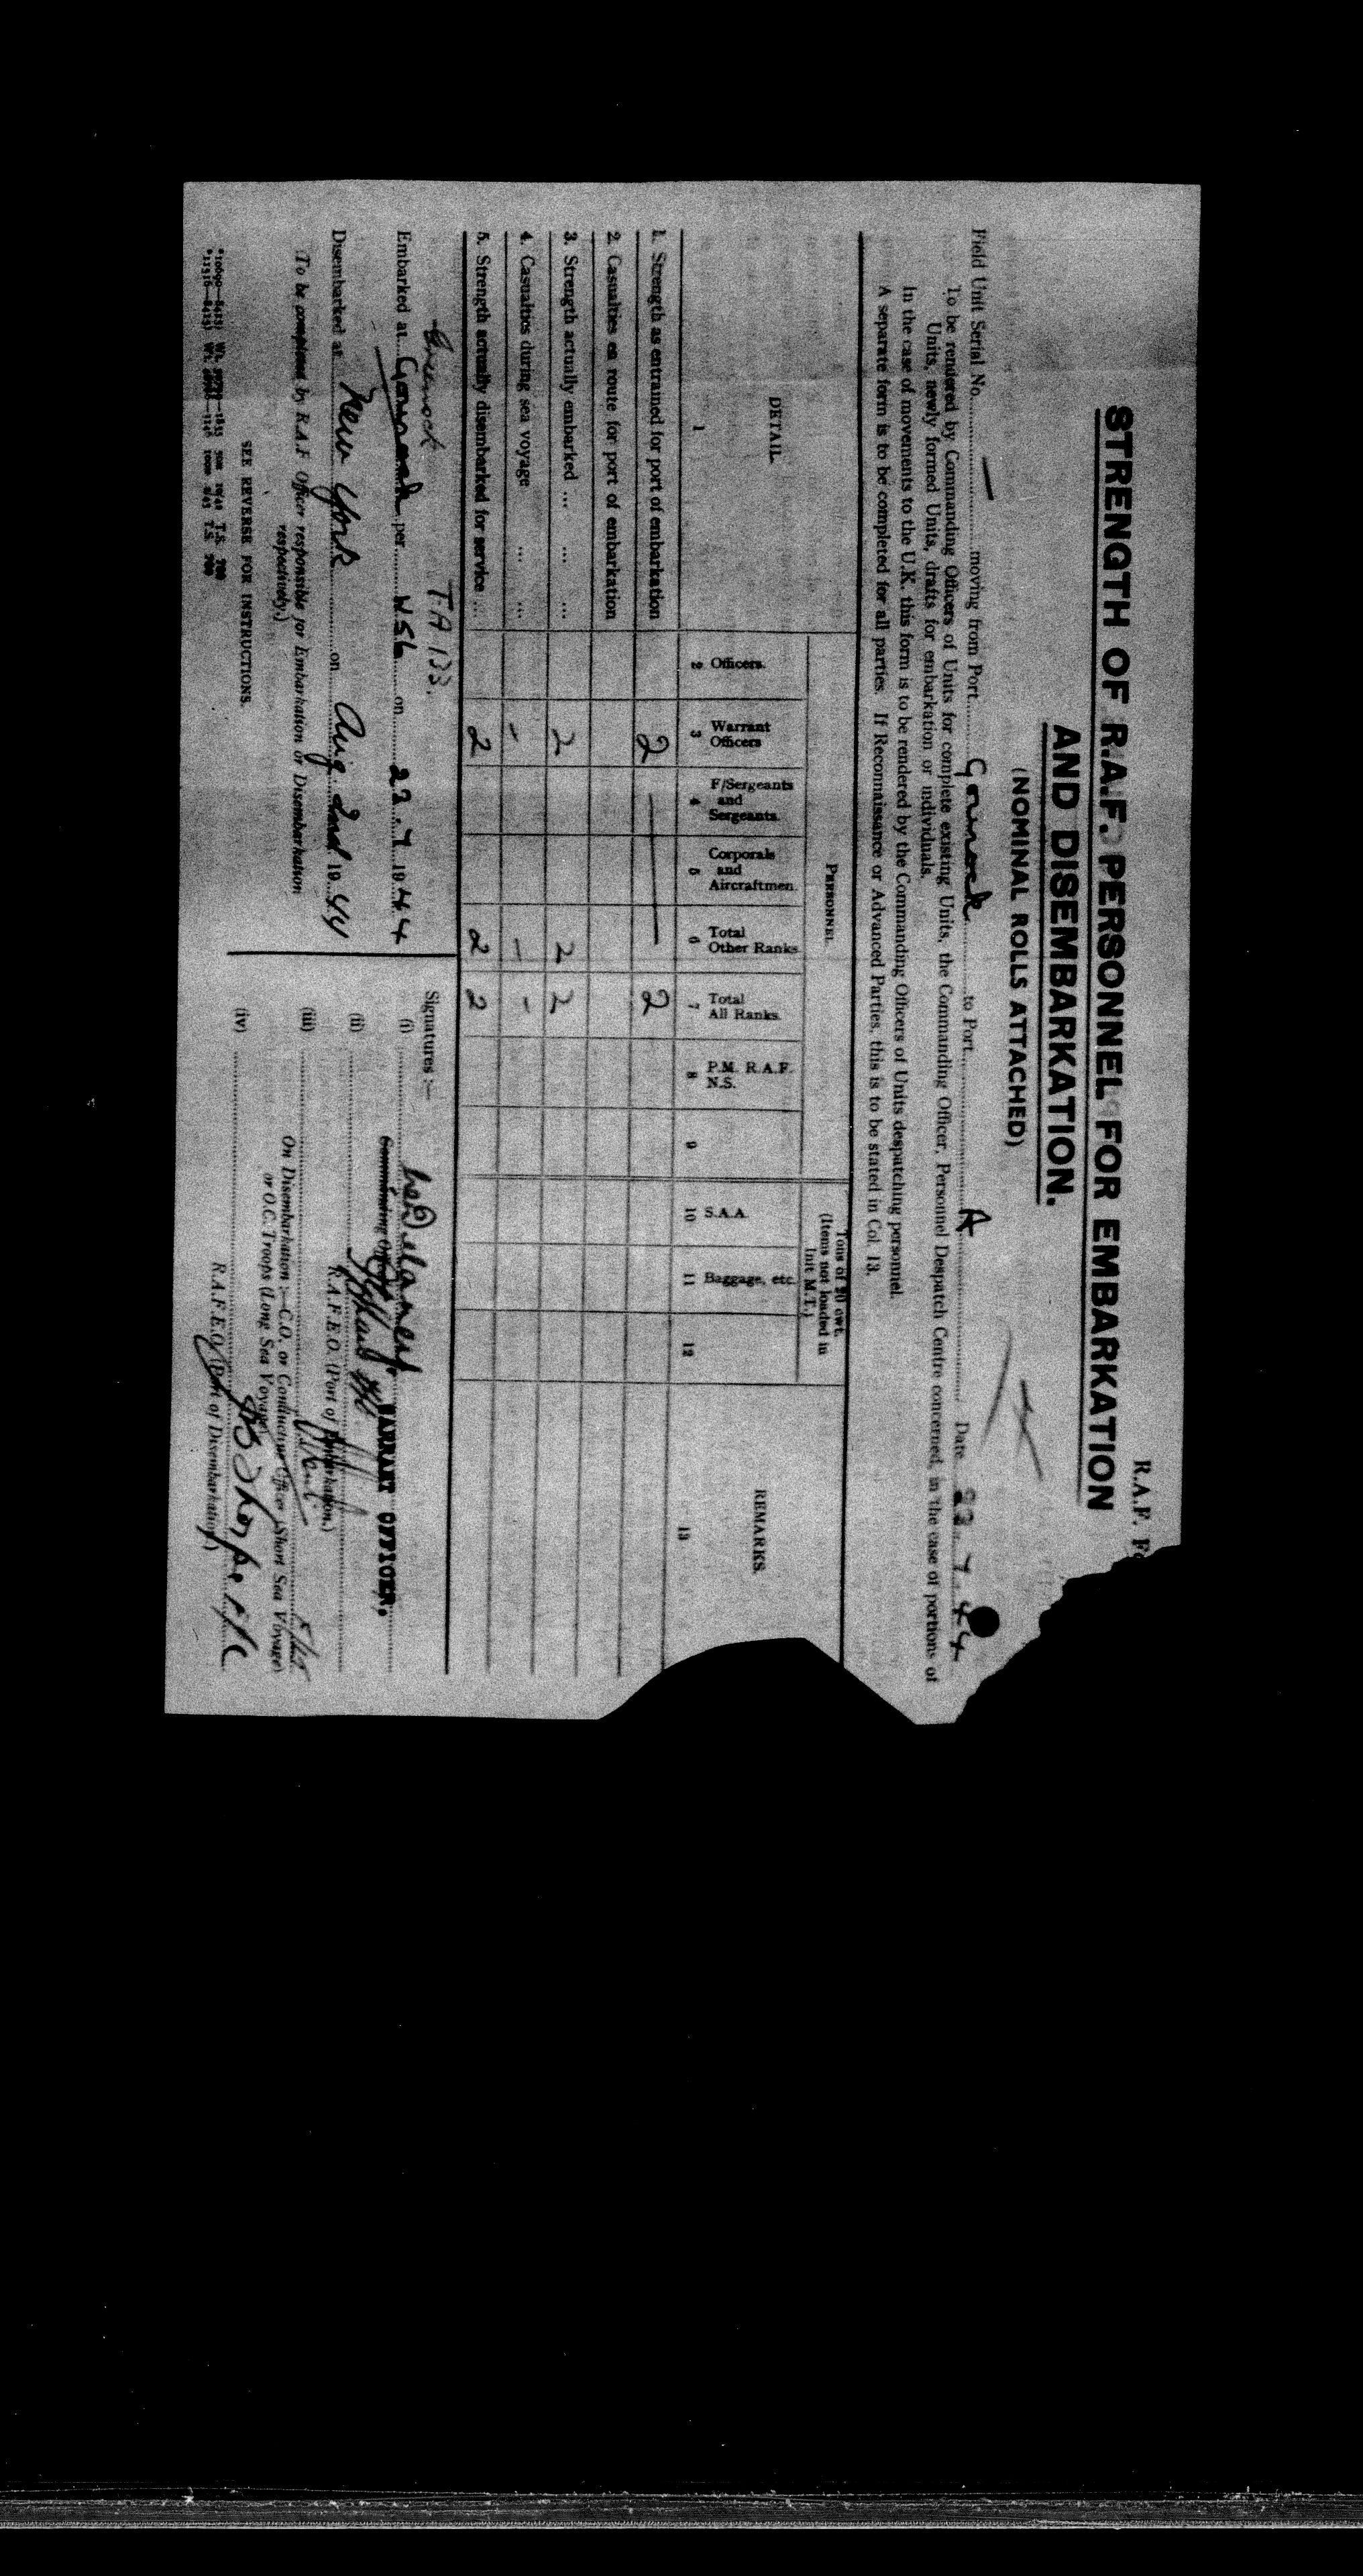 R.A.F.
STRENGTH OF R.A.F. PERSONNEL FOR EMBARKATION
AND DISEMBARKATION.
(NOMINAL ROLLS ATTACHED)
Field Unit Serial No. — moving from Port Gourock to Port A Date 22.7.44
To be rendered by Commanding Officers of Units for complete existing Units, the Commanding Officer, Personnel Despatch Centre concerned, in the case of portions of
Units, newly formed Units, drafts for embarkation or individuals.
In the case of movements to the U.K. this form is to be rendered by the Commanding Officers of Units despatching personnel.
A separate form is to be completed for all parties. If Reconnaissance or Advanced Parties, this is to be stated in Col. 13.
DETAIL PERSONNEL Tons of 20 cwt. (Items not loaded in Unit M.T.) REMARKS
Officers. Warrant Officers F/Sergeants and Sergeants. Corporals and Aircraftmen. Total Other Ranks Total All Ranks. P.M. R.A.F. N.S. S.A.A. Baggage, etc.
1 2 3 4 5 6 7 8 9 10 11 12 13
1. Strength as entrained for port of embarkation 2 — 2
2. Casualties en route for port of embarkation
3. Strength actually embarked ... ... ... 2 2 2
4. Casualties during sea voyage ... ... - - -
5. Strength actually disembarked for service ... 2 2 2
Greenock T.A.133.
Embarked at Gourock per N.56 on 22.7.1944
Disembarked at New York on Aug 2nd 1944
(To be completed by R.A.F Officer responsible for Embarkation or Disembarkation
respectively.)
SEE REVERSE FOR INSTRUCTIONS.
Signatures :—
(i) WARRANT OFFICER.
Commanding Officer
(ii)
R.A.F.E.O. (Port of Embarkation.)
(iii)
On Disembarkation :—C.O. or Conducting Officer (Short Sea Voyage)
or O.C. Troops (Long Sea Voyage)
(iv)
R.A.F.E.O. (Port of Disembarkation)